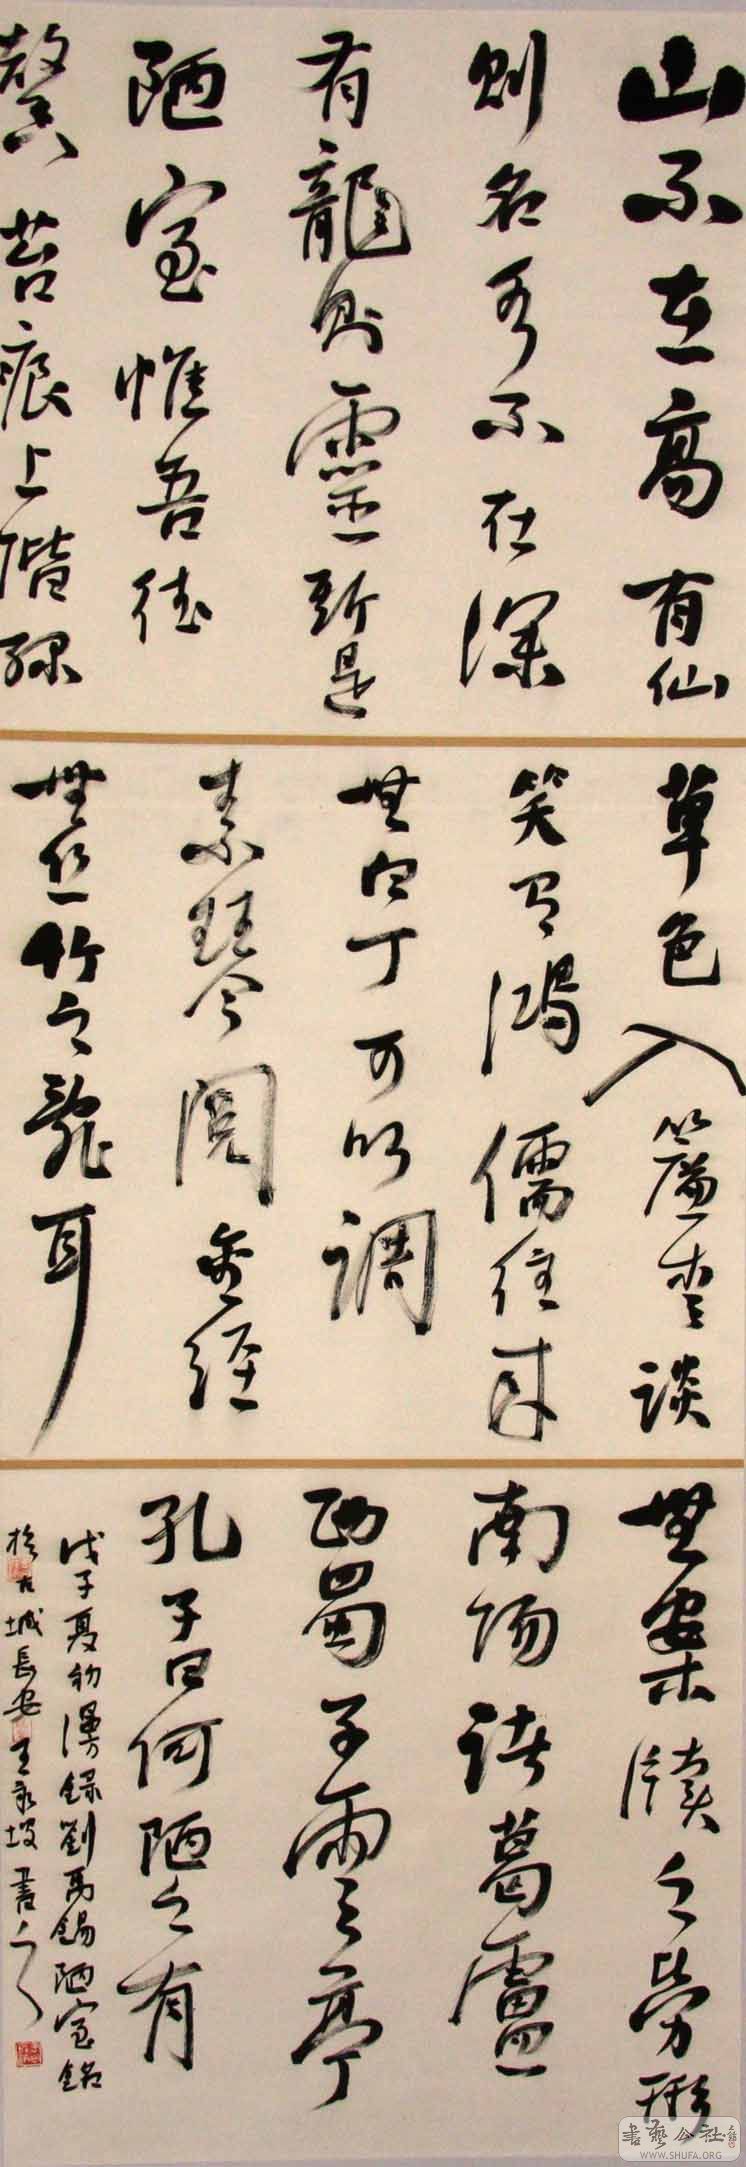 山不在高有仙
則名水不在深
有龍則靈斯是
陋室惟吾德
馨苔痕上階綠
草色入簾青談
笑有鴻儒往來
無白丁可以調
素琴閱金經
無絲竹之亂耳
無案牘之勞形
南陽諸葛廬
西蜀子雲亭
孔子曰何陋之有
戊子夏初漫錄劉禹錫陋室銘
於古城長安王永坡書之
書藝公社
WWW.SHUFA.ORG